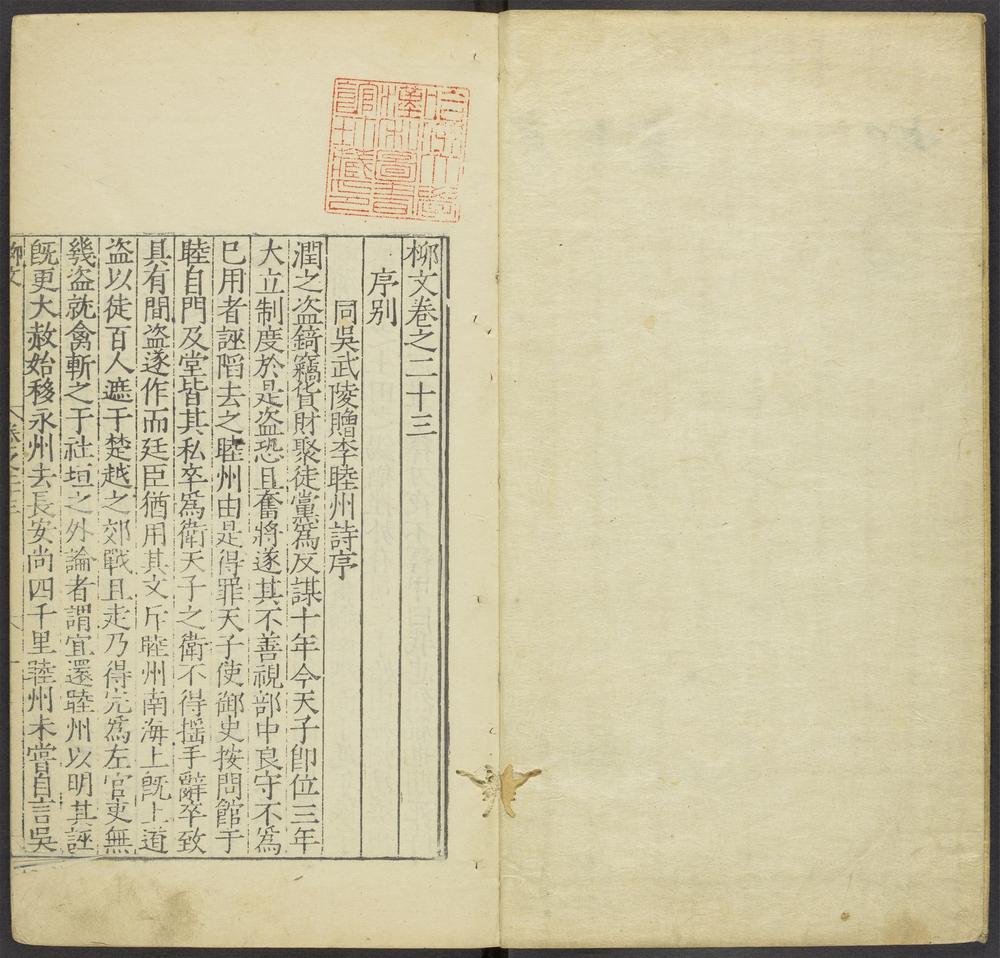 柳文卷之二十三
序别
同吳武陵贈李睦州詩序
潤之盗錡竊貨財聚徒黨為反謀十年今天子即位三年
大立制度於是盗恐且奮將遂其不善視部中良守不為
巳用者誣陷去之睦州由是得罪天子使御史按問館于
睦自門及堂皆其私卒為衛天子之衛不得摇手辭卒致
具有間盗遂作而廷臣猶用其文斥睦州南海上既上道
盗以徒百人遮于楚越之郊戰且走乃得完為左官吏無
幾盗就禽斬之于社垣之外論者謂宜還睦州以明其誣
既更大赦始移永州去長安尚四千里睦州未嘗自言吳
柳文
卷之二十三
一
哈佛大學
漢和圖書
館珍藏印